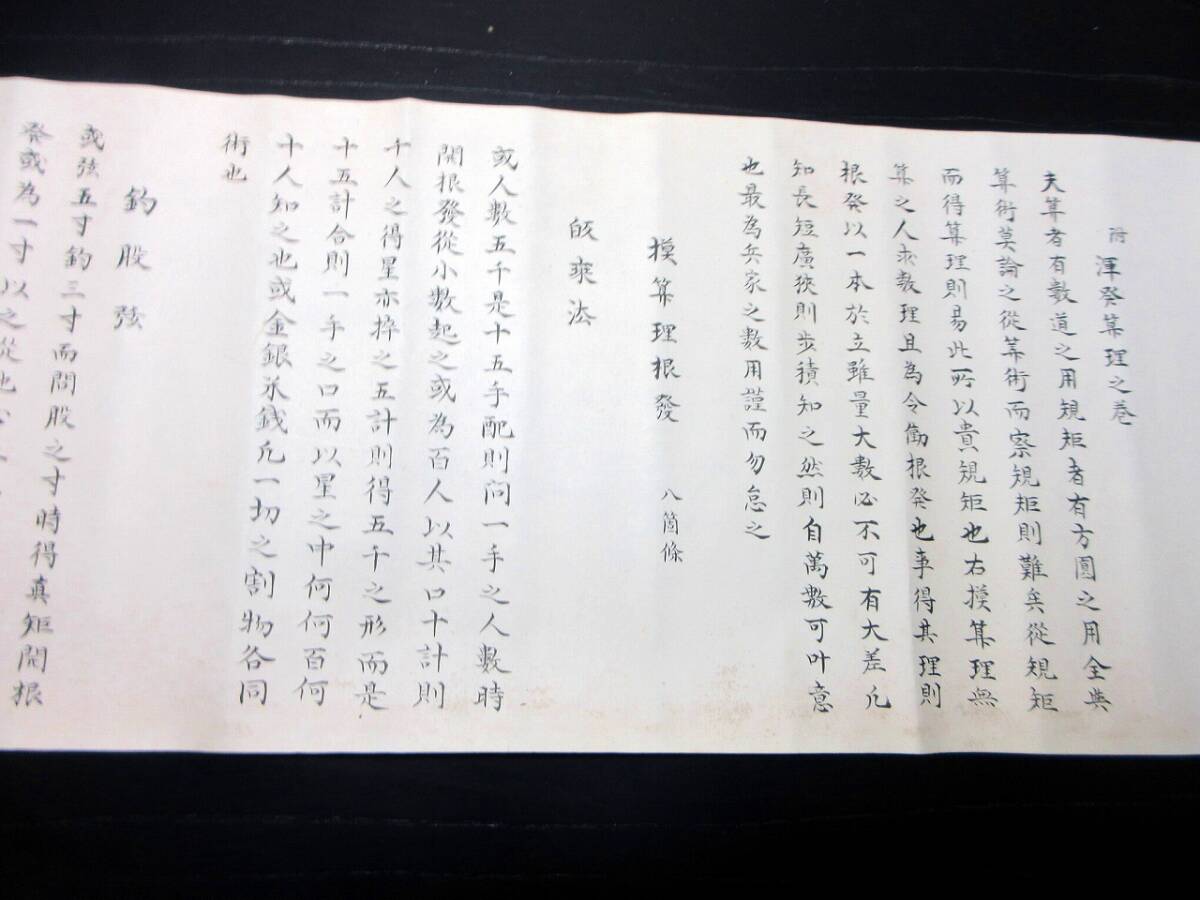 附 渾發算理之巻
夫算者有數道之用規矩者有方圓之用全典
算術莫論之從筭術而察規矩則難矣從規矩
而得算理則易此所以貴規矩也右摸算理無
算之人求教理且為令勸根発也事得其理則
根発以一本於立雖量大数必不可有大差凡
知長短廣狹則步積知之然則自萬數可叶意
也最為兵家之数用謹而勿怠之
摸算理根發 八箇條
乘法
或人數五千是十五手配則问一手之人數時
開根發從小數起之或為百人以其口十計則
千人之得星亦捽之五計則得五千之形而是
十五計合則一手之口而以星之中何何百何
十人知之也或金銀米銭凢一切之割物各同
術也
釣股弦
或弦五寸釣三寸而問股之寸時得真矩開根
発或為一寸以之從也